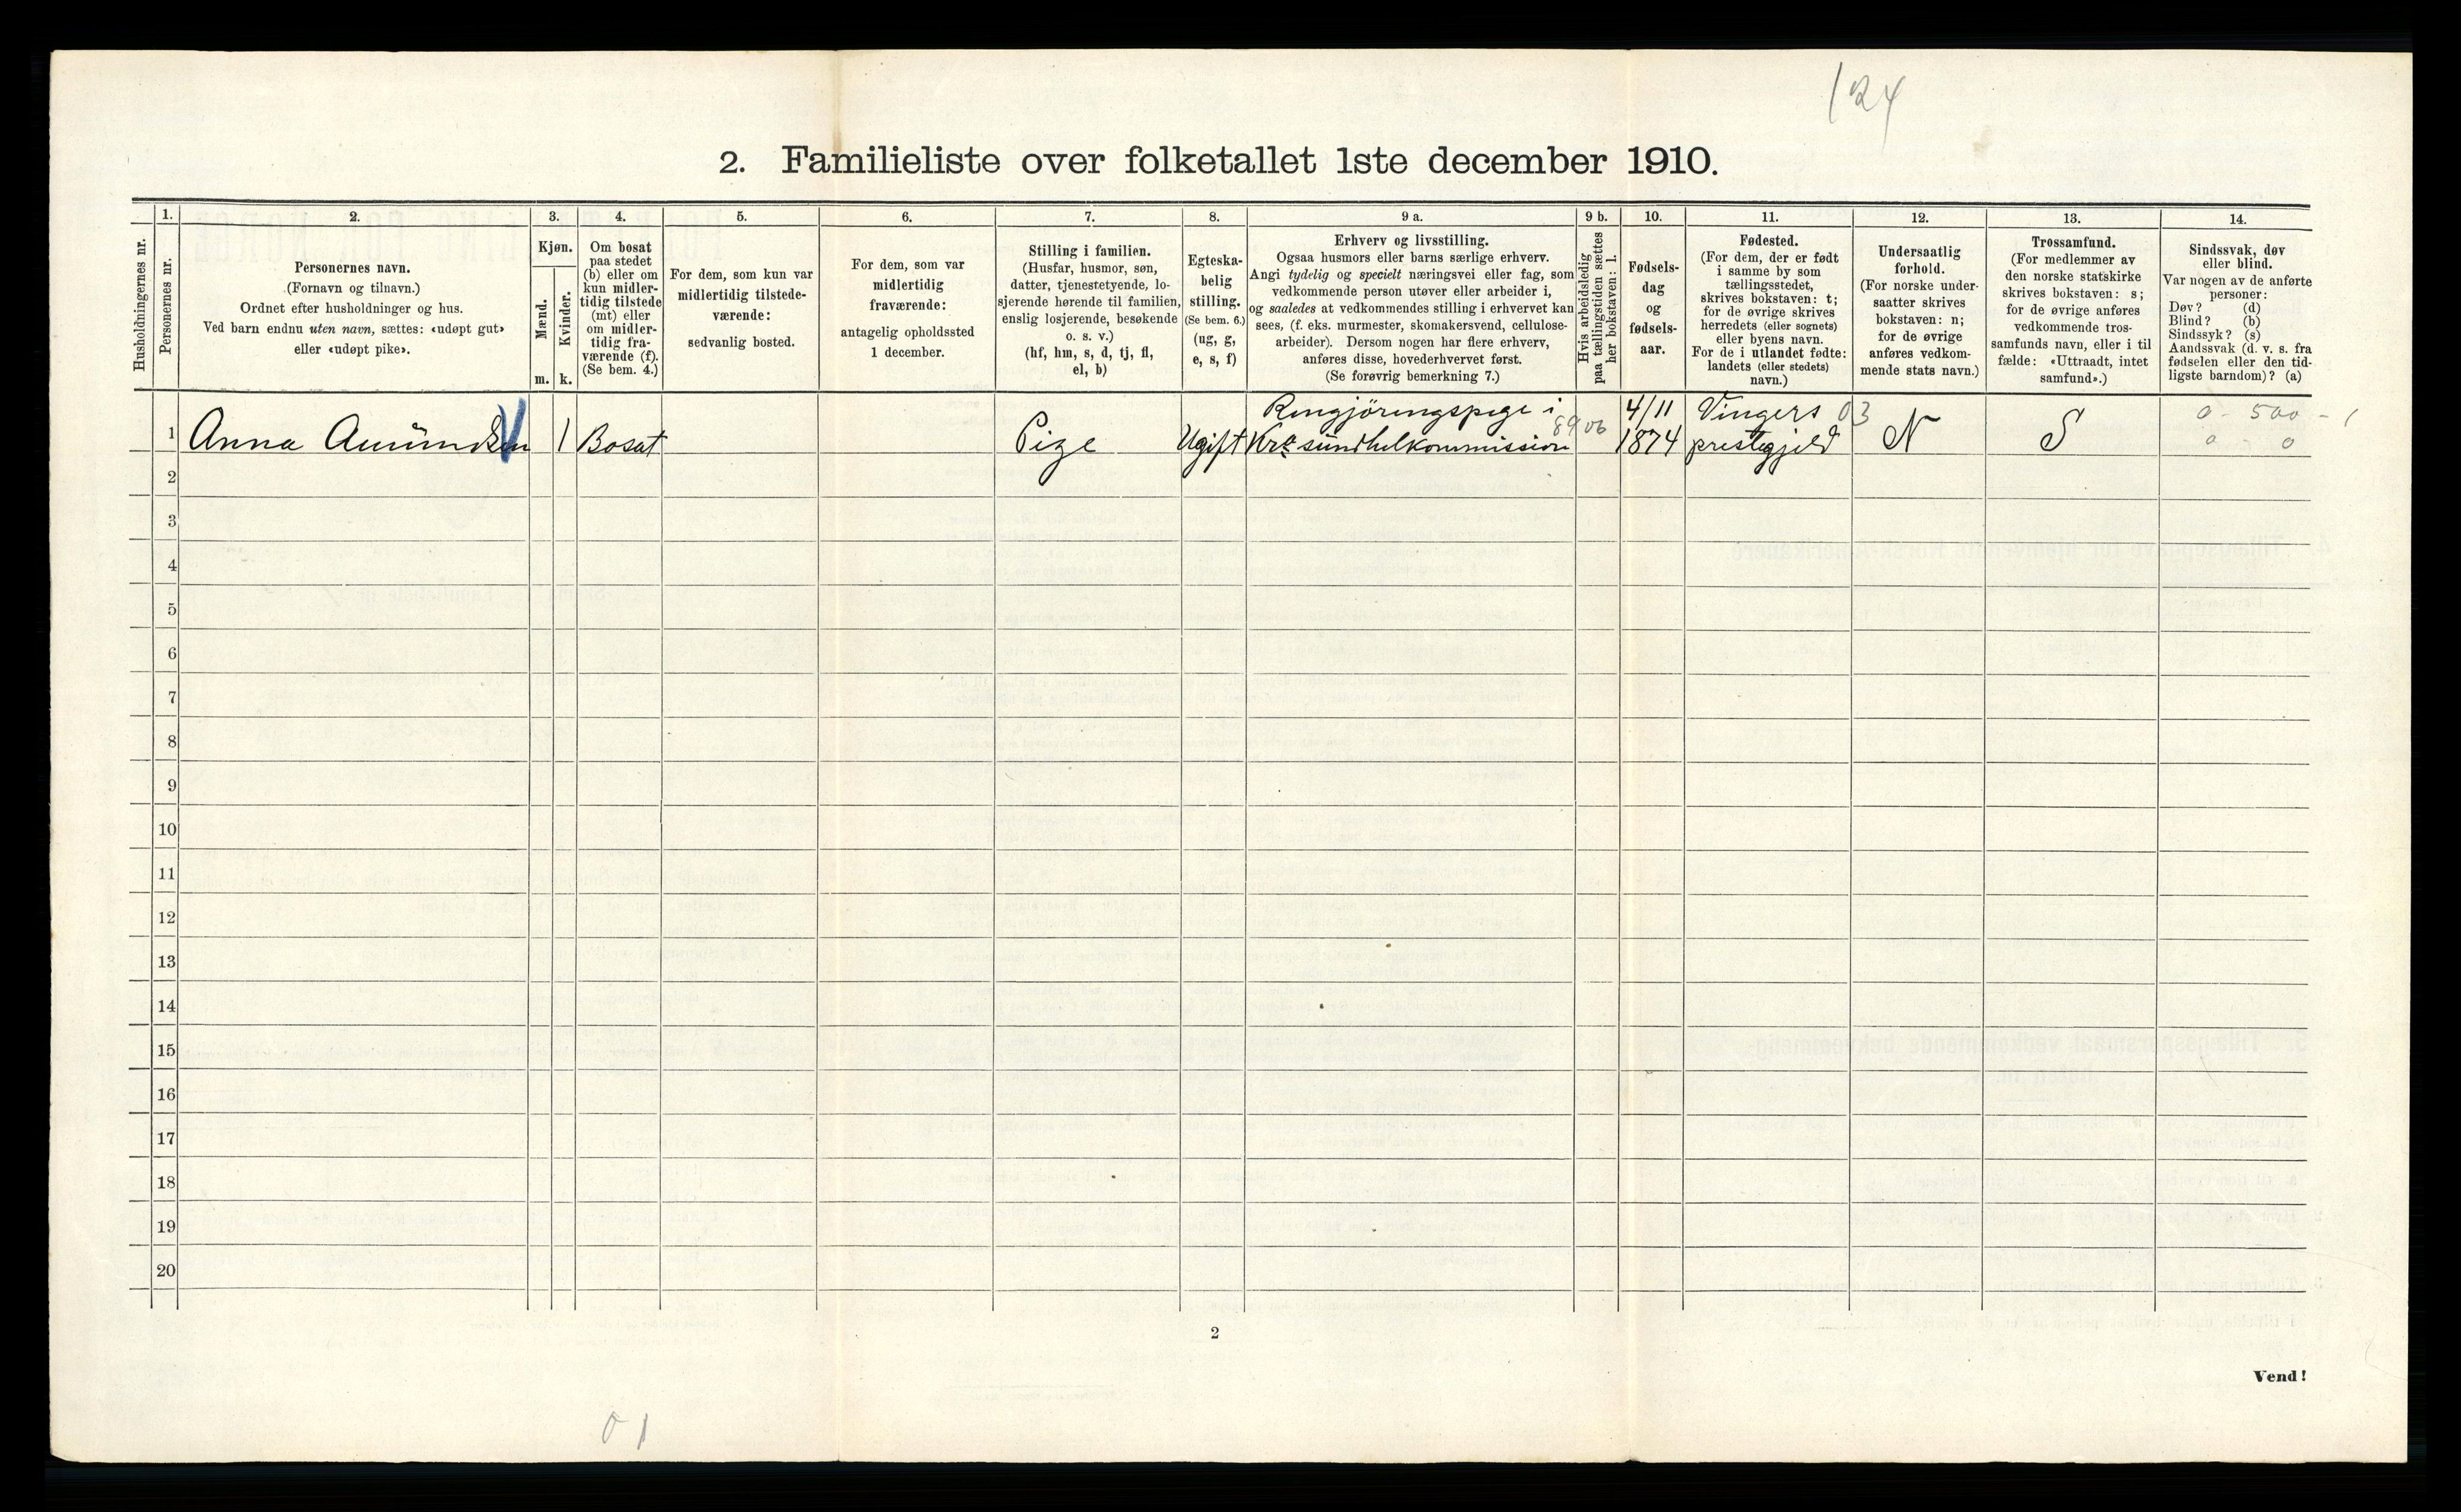 124
2. Familieliste over folketallet 1ste december 1910.
Husholdningernes nr.
1.
Personernes nr.
2.
Personernes navn.
(Fornavn og tilnavn.)
Ordnet efter husholdninger og hus.
Ved barn endnu uten navn, sættes: «udøpt gut»
eller «udøpt pike».
3.
Kjøn.
Mænd.
Kvinder.
m. k.
4.
Om bosat
paa stedet
(b) eller om
kun midler-
tidig tilstede
(mt) eller
om midler-
tidig fra-
værende (f).
(Se bem. 4.)
5.
For dem, som kun var
midlertidig tilstede-
værende:
sedvanlig bosted.
6.
For dem, som var
midlertidig
fraværende:
antagelig opholdssted
1 december.
7.
Stilling i familien.
(Husfar, husmor, søn,
datter, tjenestetyende, lo-
sjerende hørende til familien,
enslig losjerende, besøkende
o. s. v.)
(hf, hm, s, d, tj, fl,
el, b)
8.
Egteska-
belig
stilling.
(Se bem. 6.)
(ug, g,
e, s, f)
9 a.
Erhverv og livsstilling.
Ogsaa husmors eller barns særlige erhverv.
Angi tydelig og specielt næringsvei eller fag, som
vedkommende person utøver eller arbeider i,
og saaledes at vedkommendes stilling i erhvervet kan
sees, (f. eks. murmester, skomakersvend, cellulose-
arbeider). Dersom nogen har flere erhverv,
anføres disse, hovederhvervet først.
(Se forøvrig bemerkning 7.)
9 b.
Hvis arbeidsledig
paa tællingstiden sættes
her bokstaven: l.
10.
Fødsels-
dag
og
fødsels-
aar.
11.
Fødested.
(For dem, der er født
i samme by som
tællingsstedet,
skrives bokstaven: t;
for de øvrige skrives
herredets (eller sognets)
eller byens navn.
For de i utlandet fødte:
landets (eller stedets)
navn.)
12.
Undersaatlig
forhold.
(For norske under-
saatter skrives
bokstaven: n;
for de øvrige
anføres vedkom-
mende stats navn.)
13.
Trossamfund.
(For medlemmer av
den norske statskirke
skrives bokstaven: s;
for de øvrige anføres
vedkommende tros-
samfunds navn, eller i til
fælde: «Uttraadt, intet
samfund».)
14.
Sindssvak, døv
eller blind.
Var nogen av de anførte
personer:
Døv? (d)
Blind? (b)
Sindssyk? (s)
Aandssvak (d. v. s. fra
fødselen eller den tid-
ligste barndom)? (a)
Rengjöringspige i 4/11 Vingers 03 0 - 500 - 1
1 Anna Amundsen 1 Bosat Pige Ugift Kra sundhetkommission 8906 1874 prestegjeld N S 0 - 0
2
3
4
5
6
7
8
9
10
11
12
13
14
15
16
17
18
19
20
2
Vend!
0 1